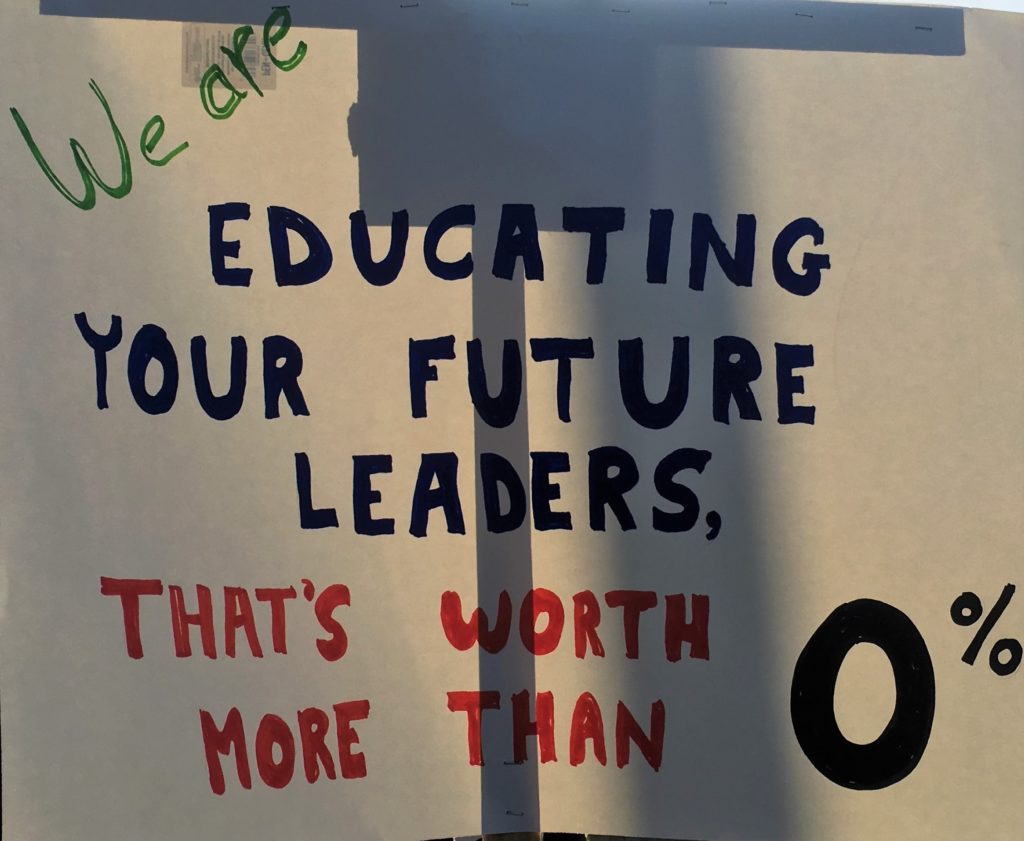 We are
EDUCATING
YOUR FUTURE
LEADERS,
THAT'S WORTH
MORE THAN 0%